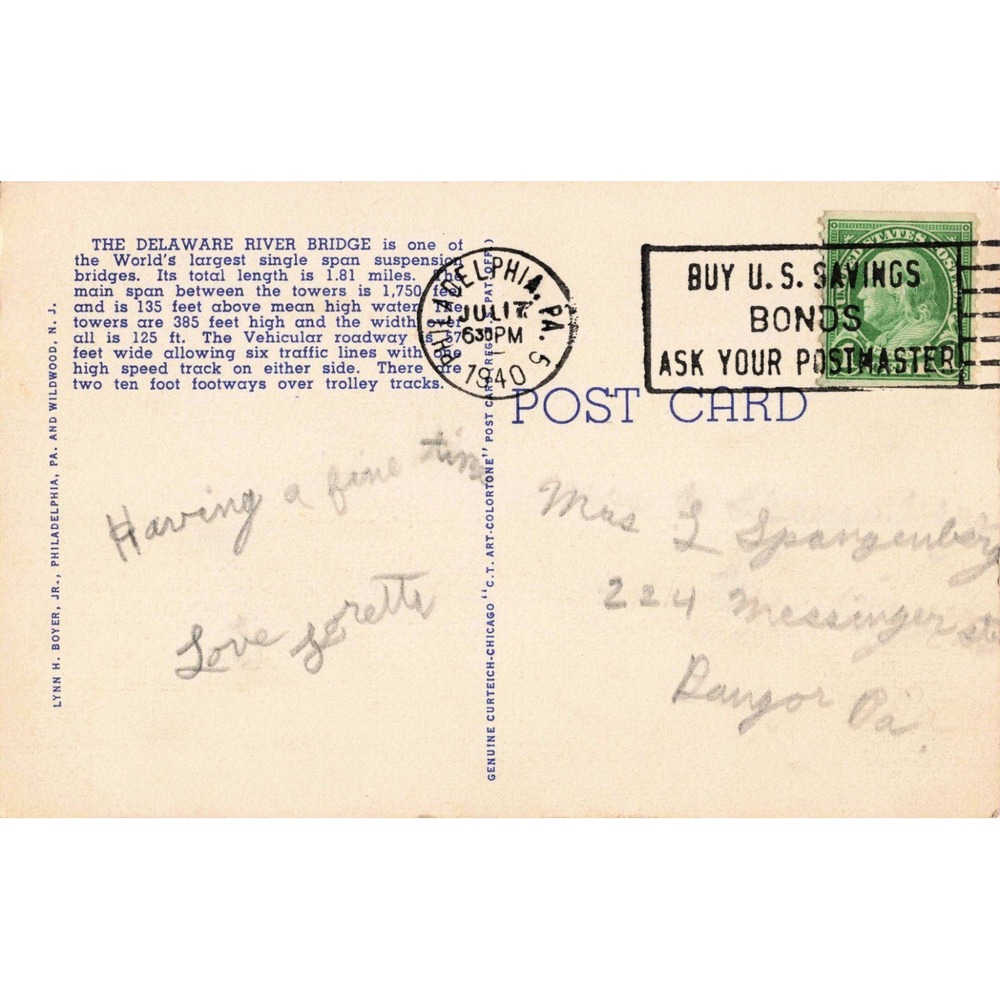 THE DELAWARE RIVER BRIDGE is one of
the World's largest single span suspension
bridges. Its total length is 1.81 miles. The
main span between the towers is 1,750 feet
and is 135 feet above mean high water. The
towers are 385 feet high and the width
all is 125 ft. The Vehicular roadway is 57
feet wide allowing six traffic lines with one
high speed track on either side. There are
two ten foot footways over trolley tracks.
LYNN H. BOYER, JR., PHILADELPHIA, PA. AND WILDWOOD, N. J.
Having a fine time
Love Lorett
GENUINE CURTEICH-CHICAGO "C.T. ART-COLORTONE" POST CARD (REG. PAT. OFF.)
PHILADELPHIA, PA. 5
JUL 17
630PM
1940
BUY U.S. SAVINGS
BONDS
ASK YOUR POSTMASTER
UNITED STATES POSTAGE
POST CARD
Mrs L Spangenberg
224 Messinger st
Bangor Pa.